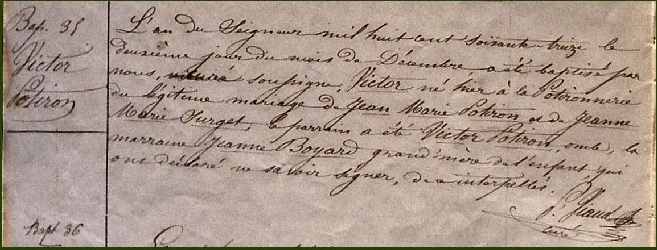 Bap. 35
Victor
Potiron
L'an du Seigneur mil huit cent soixante-treize le
deuxième jour du mois de Décembre a été baptisé par
nous, soussigné, Victor né hier à la Potironnerie
du légitime mariage de Jean Marie Potiron et de Jeanne
Marie Surget, le parrain a été Victor Potiron, oncle, la
marraine Jeanne Boyard grand'mère de l'enfant qui
ont déclaré ne savoir signer, de ce interpellés.
curé
Bapt. 36